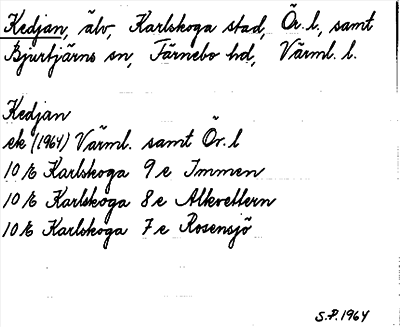 Kedjan, älv, Karlskoga stad, Ör. l., samt
Bjurtjärns sn, Färnebo hd, Värml. l.
Kedjan
ek (1964) Värml. samt Ör. l
10 E Karlskoga 9 e Immen
10 E Karlskoga 8 e Alkvettern
10 E Karlskoga 7 e Rosensjö
S.P. 1964